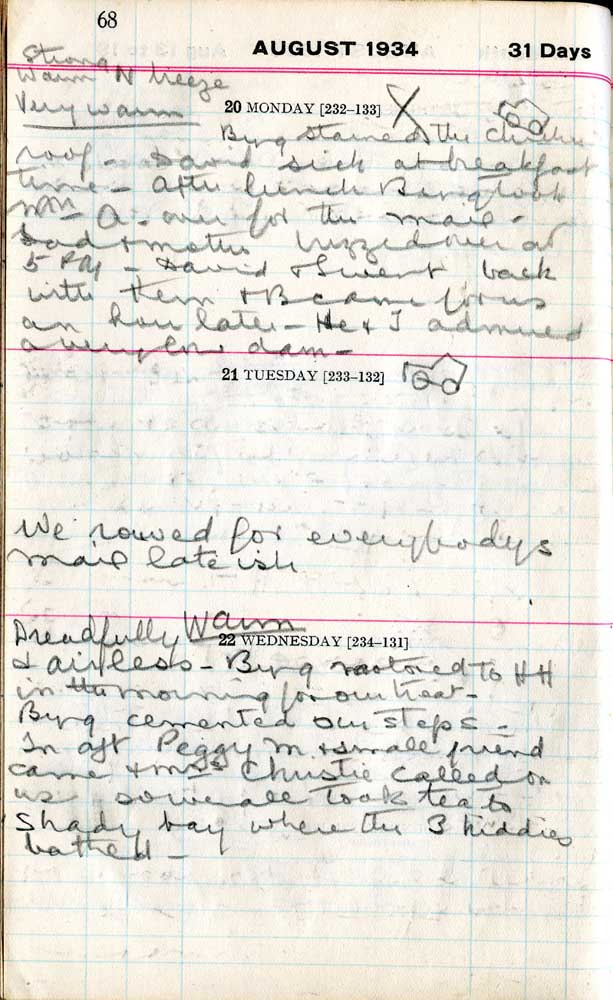 68
AUGUST 1934 31 Days
Strong
Warm N breeze
Very warm
20 MONDAY [232–133] X
Byng stained the chicken
roof – David sick at breakfast
time – after lunch Byng took
Mrs A. over for the mail –
Dad & mother buzzed over at
5 PM – David & I went back
with them & B came for us
an hour later – He & I admired
a dam –
21 TUESDAY [233–132]
We rowed for everybodys
mail lateish
Dreadfully Warm
22 WEDNESDAY [234–131]
& airless – Byng motored to HH
in the morning for our meat –
Byng cemented our steps –
In aft Peggy M. & small friend
came & Mrs Christie called on
us so we all took tea to
Shady bay where the 3 kiddies
bathed –